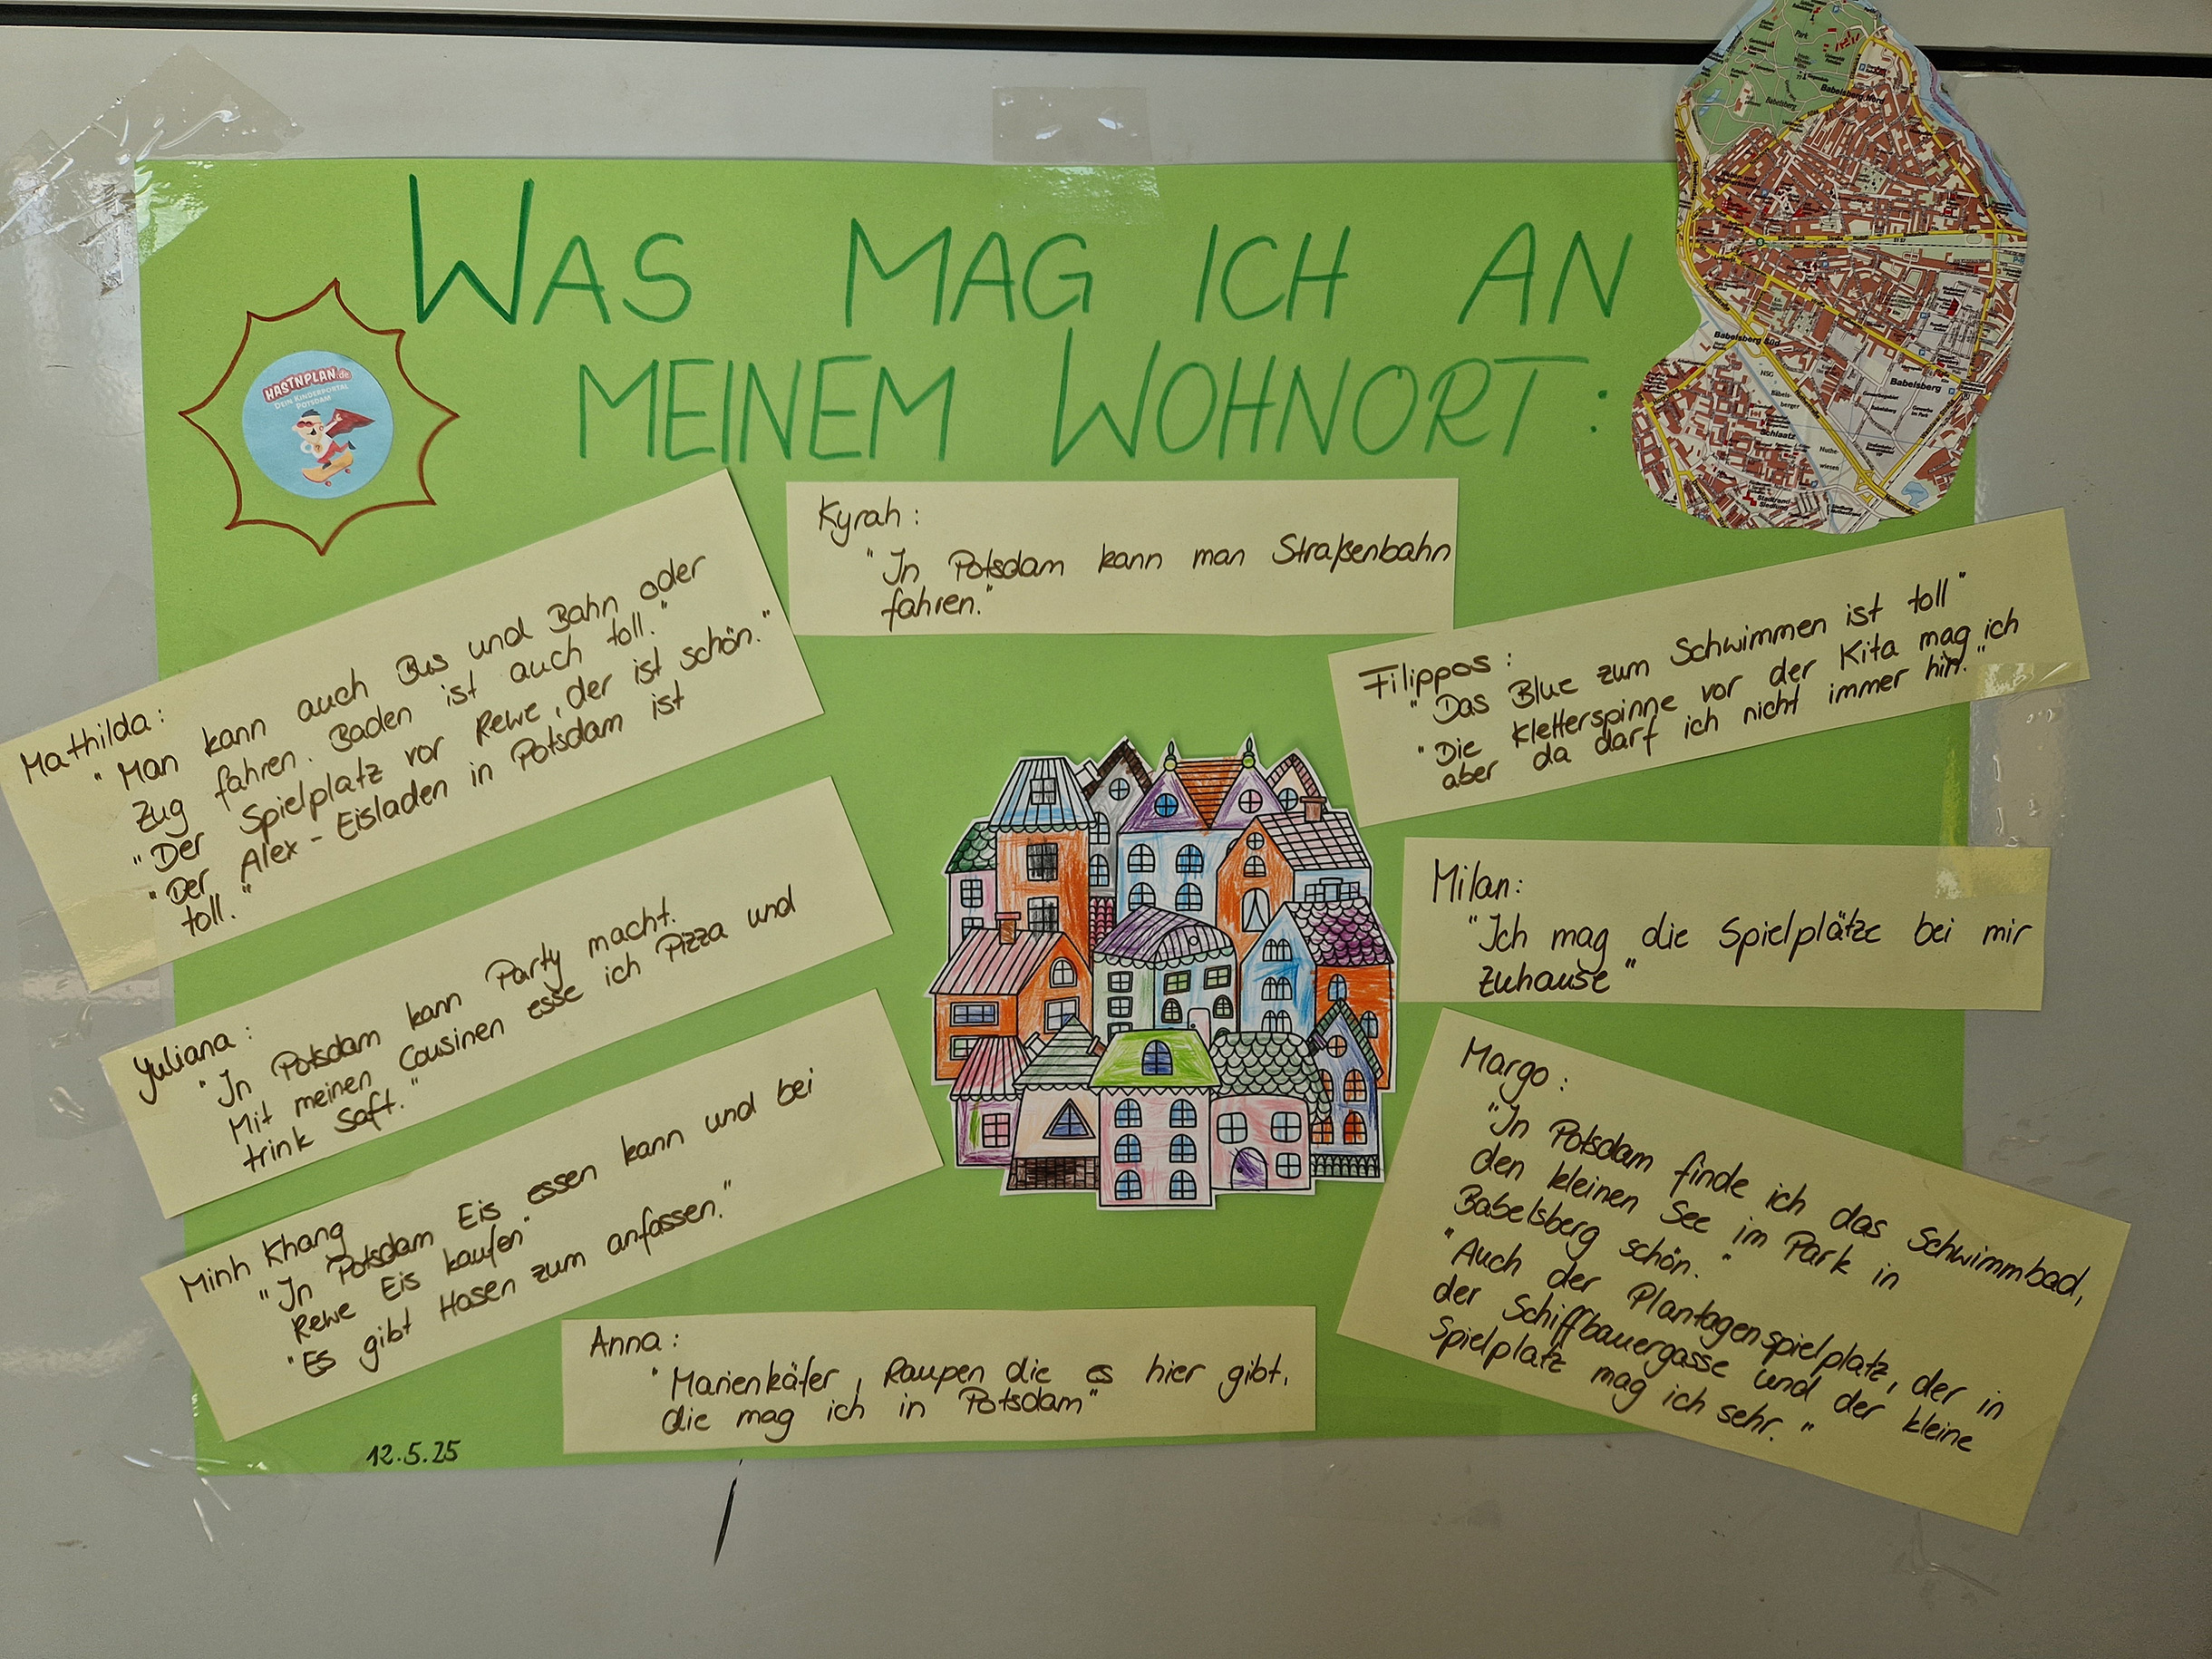 WAS MAG ICH AN
MEINEM WOHNORT:
HASTNPLAN.de
DEIN KINDERPORTAL
POTSDAM
Kyrah:
"In Potsdam kann man Straßenbahn
fahren."
Mathilda:
"Man kann auch Bus und Bahn oder
Zug fahren. Baden ist auch toll."
"Der Spielplatz vor Rewe, der ist schön."
"Der Alex-Eisladen in Potsdam ist
toll."
Yuliana:
"In Potsdam kann Party macht.
Mit meinen Cousinen esse ich Pizza und
trink Saft."
Minh Khang
"In Potsdam Eis essen kann und bei
Rewe Eis kaufen"
"Es gibt Hasen zum anfassen."
Anna:
"Marienkäfer, Raupen die es hier gibt,
die mag ich in Potsdam"
Filippos:
"Das Blue zum Schwimmen ist toll"
"Die Kletterspinne vor der Kita mag ich
aber da darf ich nicht immer hin."
Milan:
"Ich mag die Spielplätze bei mir
Zuhause"
Margo:
"In Potsdam finde ich das Schwimmbad,
den kleinen See im Park in
Babelsberg schön."
"Auch der Plantagenspielplatz, der in
der Schiffbauergasse und der kleine
Spielplatz mag ich sehr."
12.5.25
Park
Babelsberg
Babelsberg Nord
Babelsberg Süd
Babelsberg
Schlaatz